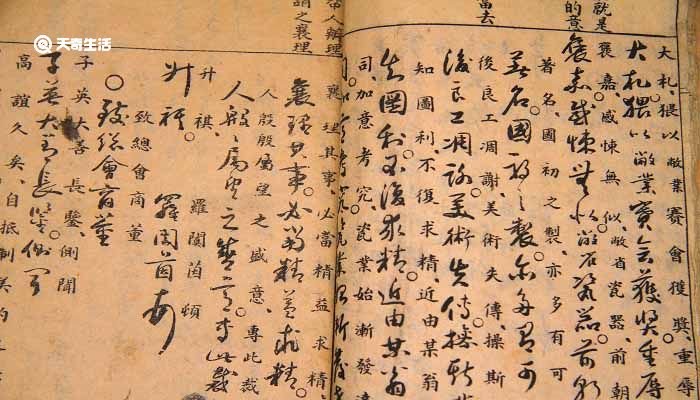 就是
的意
當去
大札猥以敝業賽會獲獎重辱
大札。猥以敝業賽會獲獎。重辱
褒嘉感悚無似敝省瓷器前朝
褒嘉。感悚無似。敝省瓷器。前朝
著名國初之製亦多有可
著名。國初之製。亦多有可
後良工凋謝美術失傳操斯
後良工凋謝。美術失傳。操斯
知圖利不復求精近由某翁
知圖利。不復求精。近由某翁
司加意考究瓷業始漸發達
辦理
謂之襄理
襄理其事必當精益求精
襄理其事。必當精益求精
人殷殷屬望之盛意專此裁
人殷殷屬望之盛意。專此裁
升祺 羅閬茵頓
升祺 羅閬茵頓
致總會商董
致總會商董
子英大善長鑒側聞
子英大善長鑒。側聞
高誼久矣自抵制美約
天奇生活